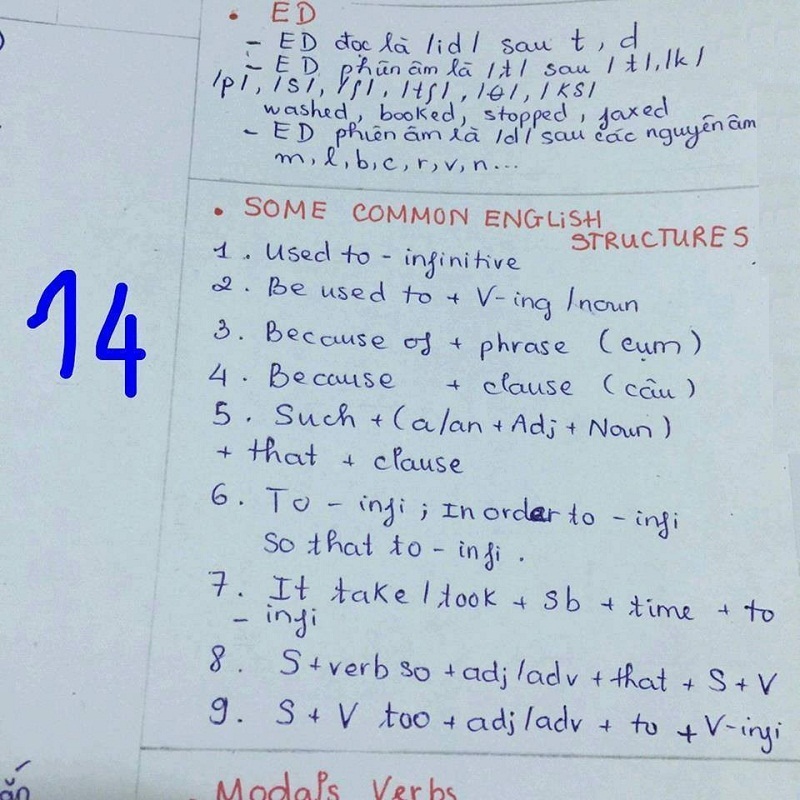 • ED
- ED đọc là /id/ sau t, d
- ED phiên âm là /t/ sau /t/, /k/
/p/, /s/, /ʃ/, /tʃ/, /θ/, /ks/
washed, booked, stopped, faxed
- ED phiên âm là /d/ sau các nguyên âm
m, l, b, c, r, v, n...
• SOME COMMON ENGLISH
STRUCTURES
1. Used to - infinitive
2. Be used to + V-ing /noun
14
3. Because of + phrase (cụm)
4. Because + clause (câu)
5. Such + (a/an + Adj + Noun)
+ that + clause
6. To - infi ; In order to - infi
So that to - infi.
7. It take / took + sb + time + to
- infi
8. S + verb so + adj/adv + that + S + V
9. S + V too + adj/adv + to + V-infi
• Modals Verbs